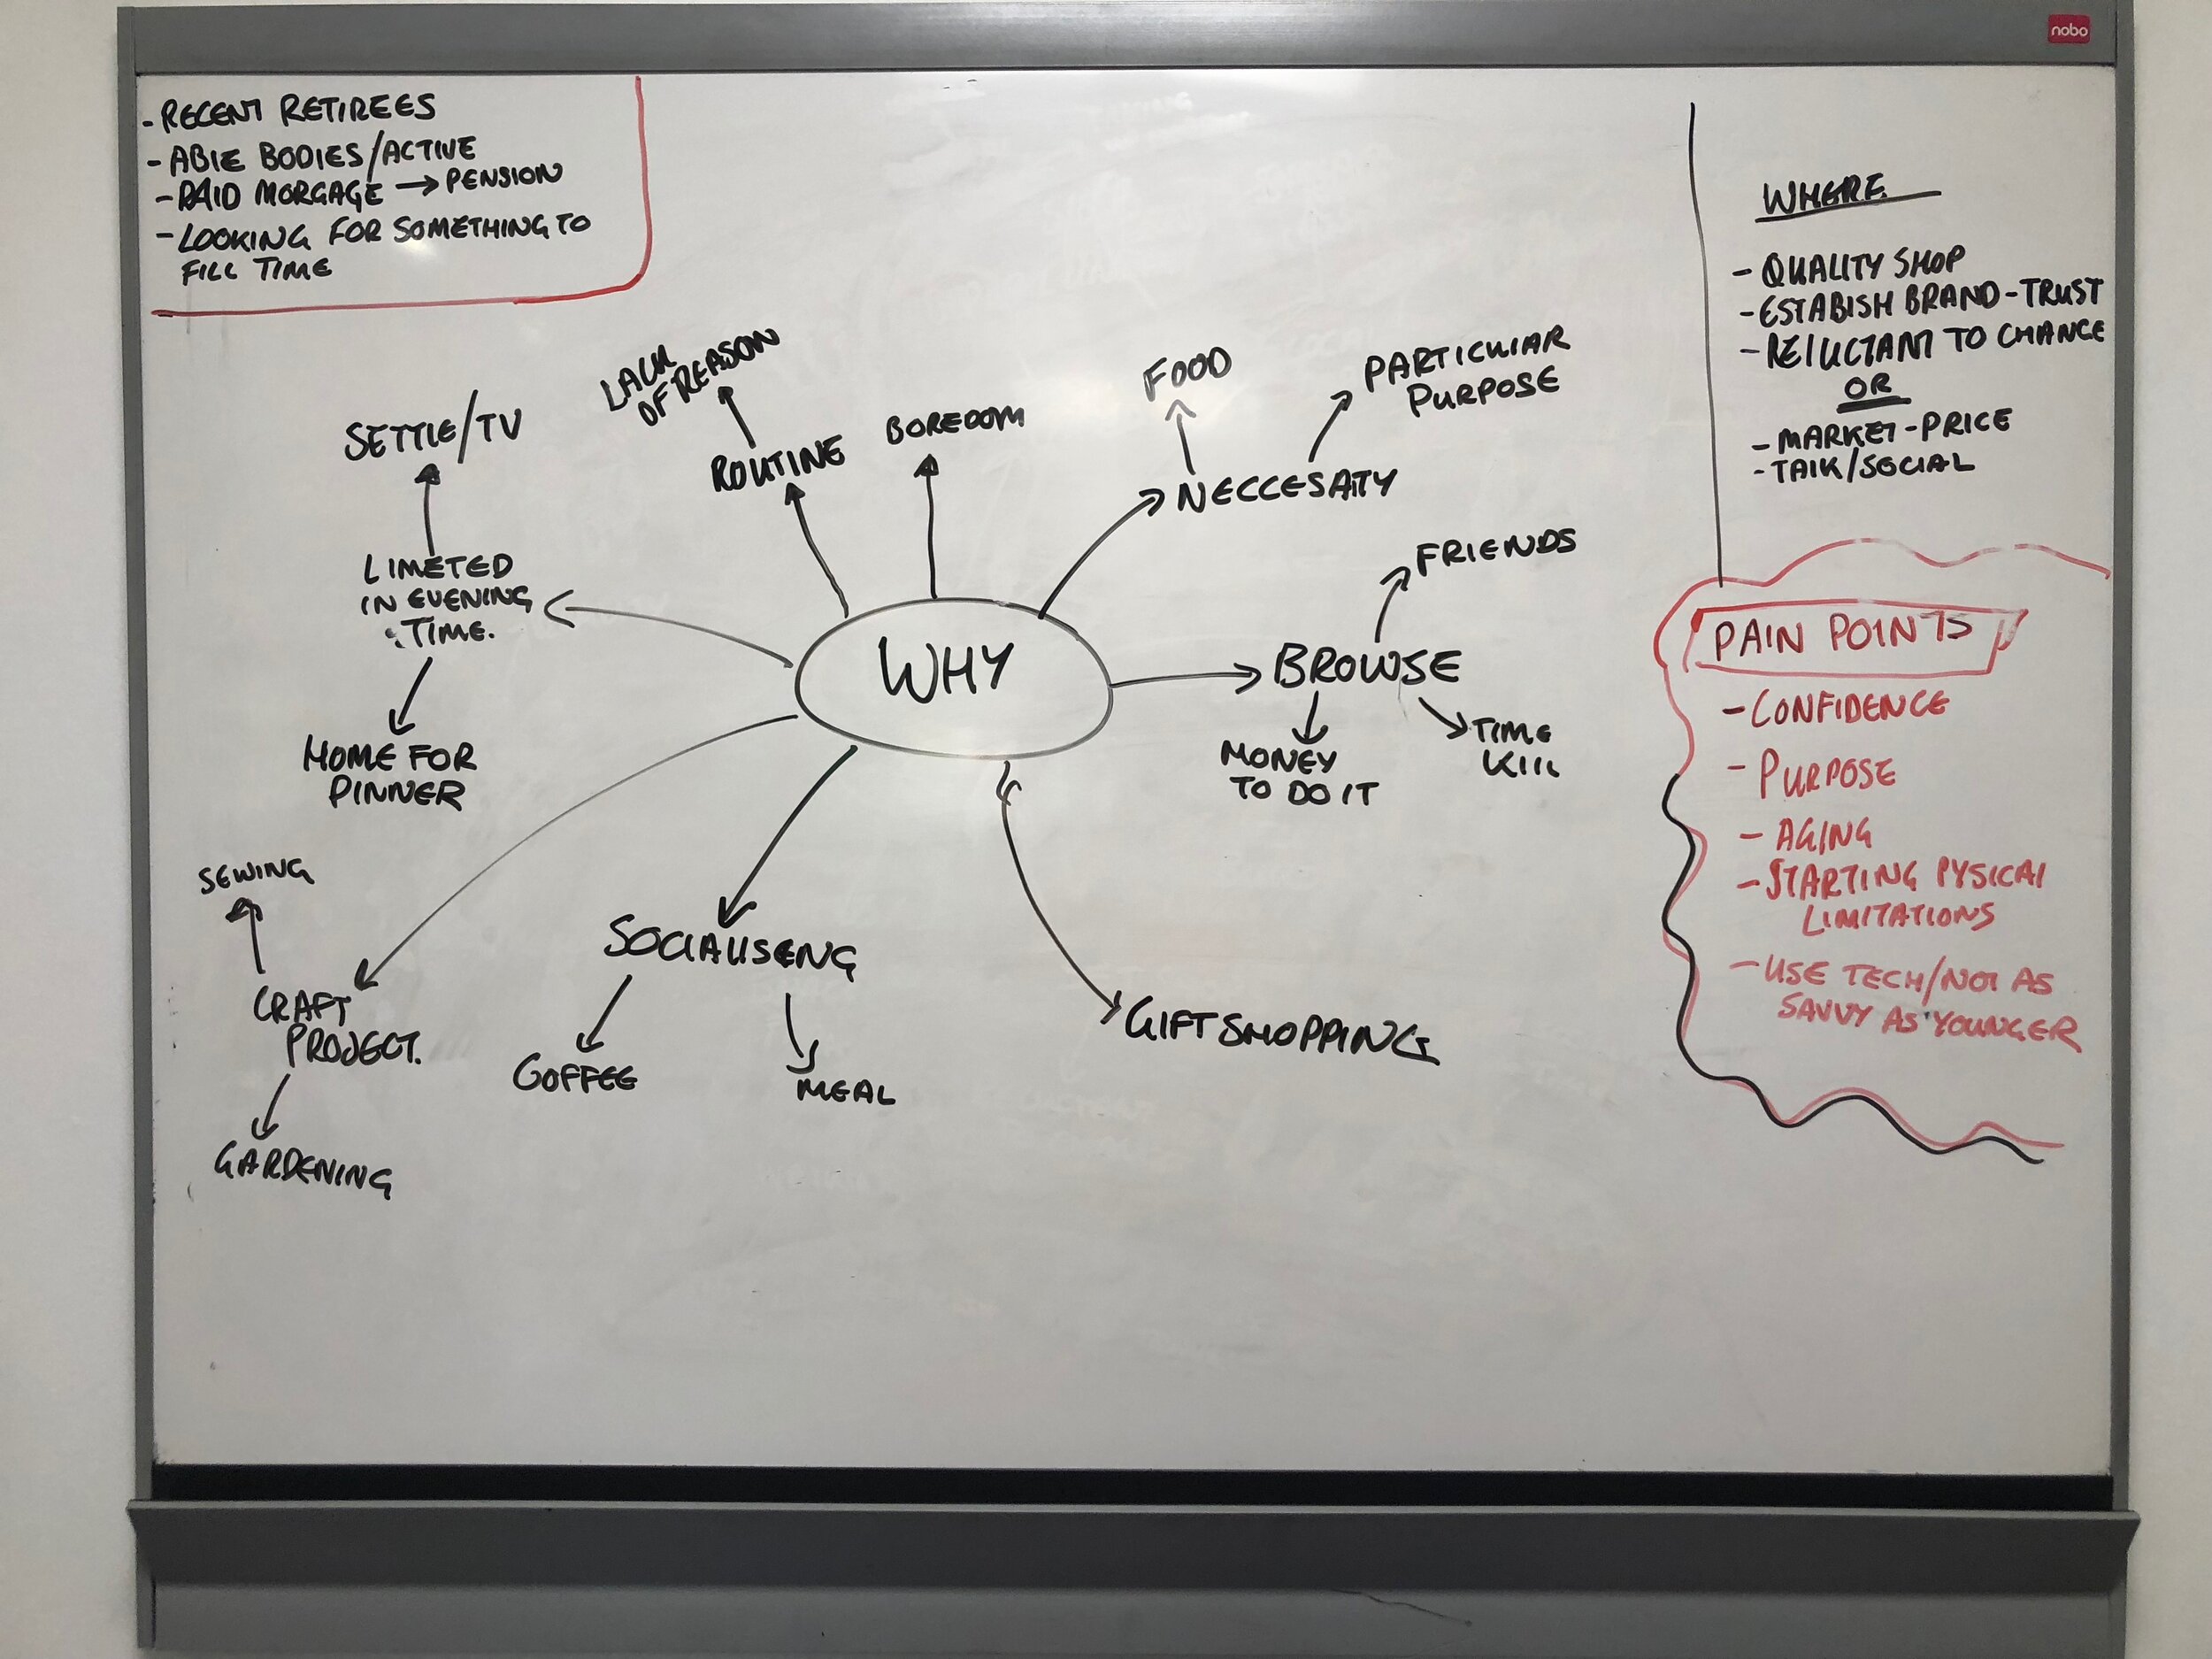 nobo
- RECENT RETIREES
- ABLE BODIES/ACTIVE
- PAID MORGAGE → PENSION
- LOOKING FOR SOMETHING TO
FILL TIME
WHERE
- QUALITY SHOP
- ESTABISH BRAND-TRUST
- RELUCTANT TO CHANGE
OR
- MARKET-PRICE
- TALK/SOCIAL
LACK
OF REASON
ROUTINE
BOREDOM
FOOD
PARTICULAR
PURPOSE
NECCESATY
SETTLE/TV
LIMETED
IN EVENING
TIME.
HOME FOR
DINNER
WHY
FRIENDS
BROWSE
MONEY
TO DO IT
TIME
KILL
SEWING
CRAFT
PROJECT.
GARDENING
SOCIALISENG
COFFEE
MEAL
GIFT SHOPPING
PAIN POINTS
- CONFIDENCE
- PURPOSE
- AGING
- STARTING PYSICAL
LIMITATIONS
- USE TECH/NOT AS
SAVVY AS YOUNGER